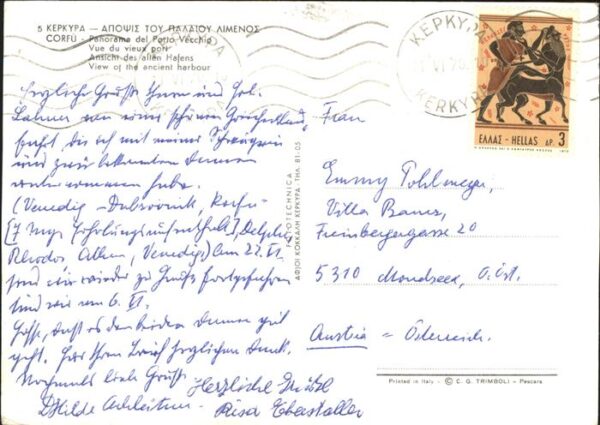 5 ΚΕΡΚΥΡΑ — ΑΠΟΨΙΣ ΤΟΥ ΠΑΛΑΙΟΥ ΛΙΜΕΝΟΣ
CORFÙ - Panorama del Porto Vecchio
Vue du vieux port
Ansicht des alten Hafens
View of the ancient harbour
ΚΕΡΚΥΡΑ
KERKYRA
ΕΛΛΑΣ - HELLAS ΔΡ. 3
Herzliche Grüße Ihnen und
kommen von einer schönen Griechenland
fahrt, die ich mit meiner
und zwei bekannten Damen
habe.
(Venedig - Dubrovnik, Korfu
[7 Tage Erholungsaufenthalt], Delphi,
Rhodos Athen, Venedig.) Am 27. V.
sind wir wieder zu Hause
sind wir am 6. VI.
Hoffe, daß es den beiden Damen gut
geht. Für Ihren Brief herzlichen Dank.
Nochmals liebe Grüße
Hilde
Herzliche Grüße
Risa Eberstaller
ΑΦΟΙ ΚΟΚΚΑΛΗ ΚΕΡΚΥΡΑ - ΤΗΛ. 81-05
Frau
Emmy Pohlmeyer,
Villa
Freinbergergasse 20
5310 Mondsee, O.Öst.
Austria = Österreich.
Printed in Italy - © C. G. TRIMBOLI - Pescara